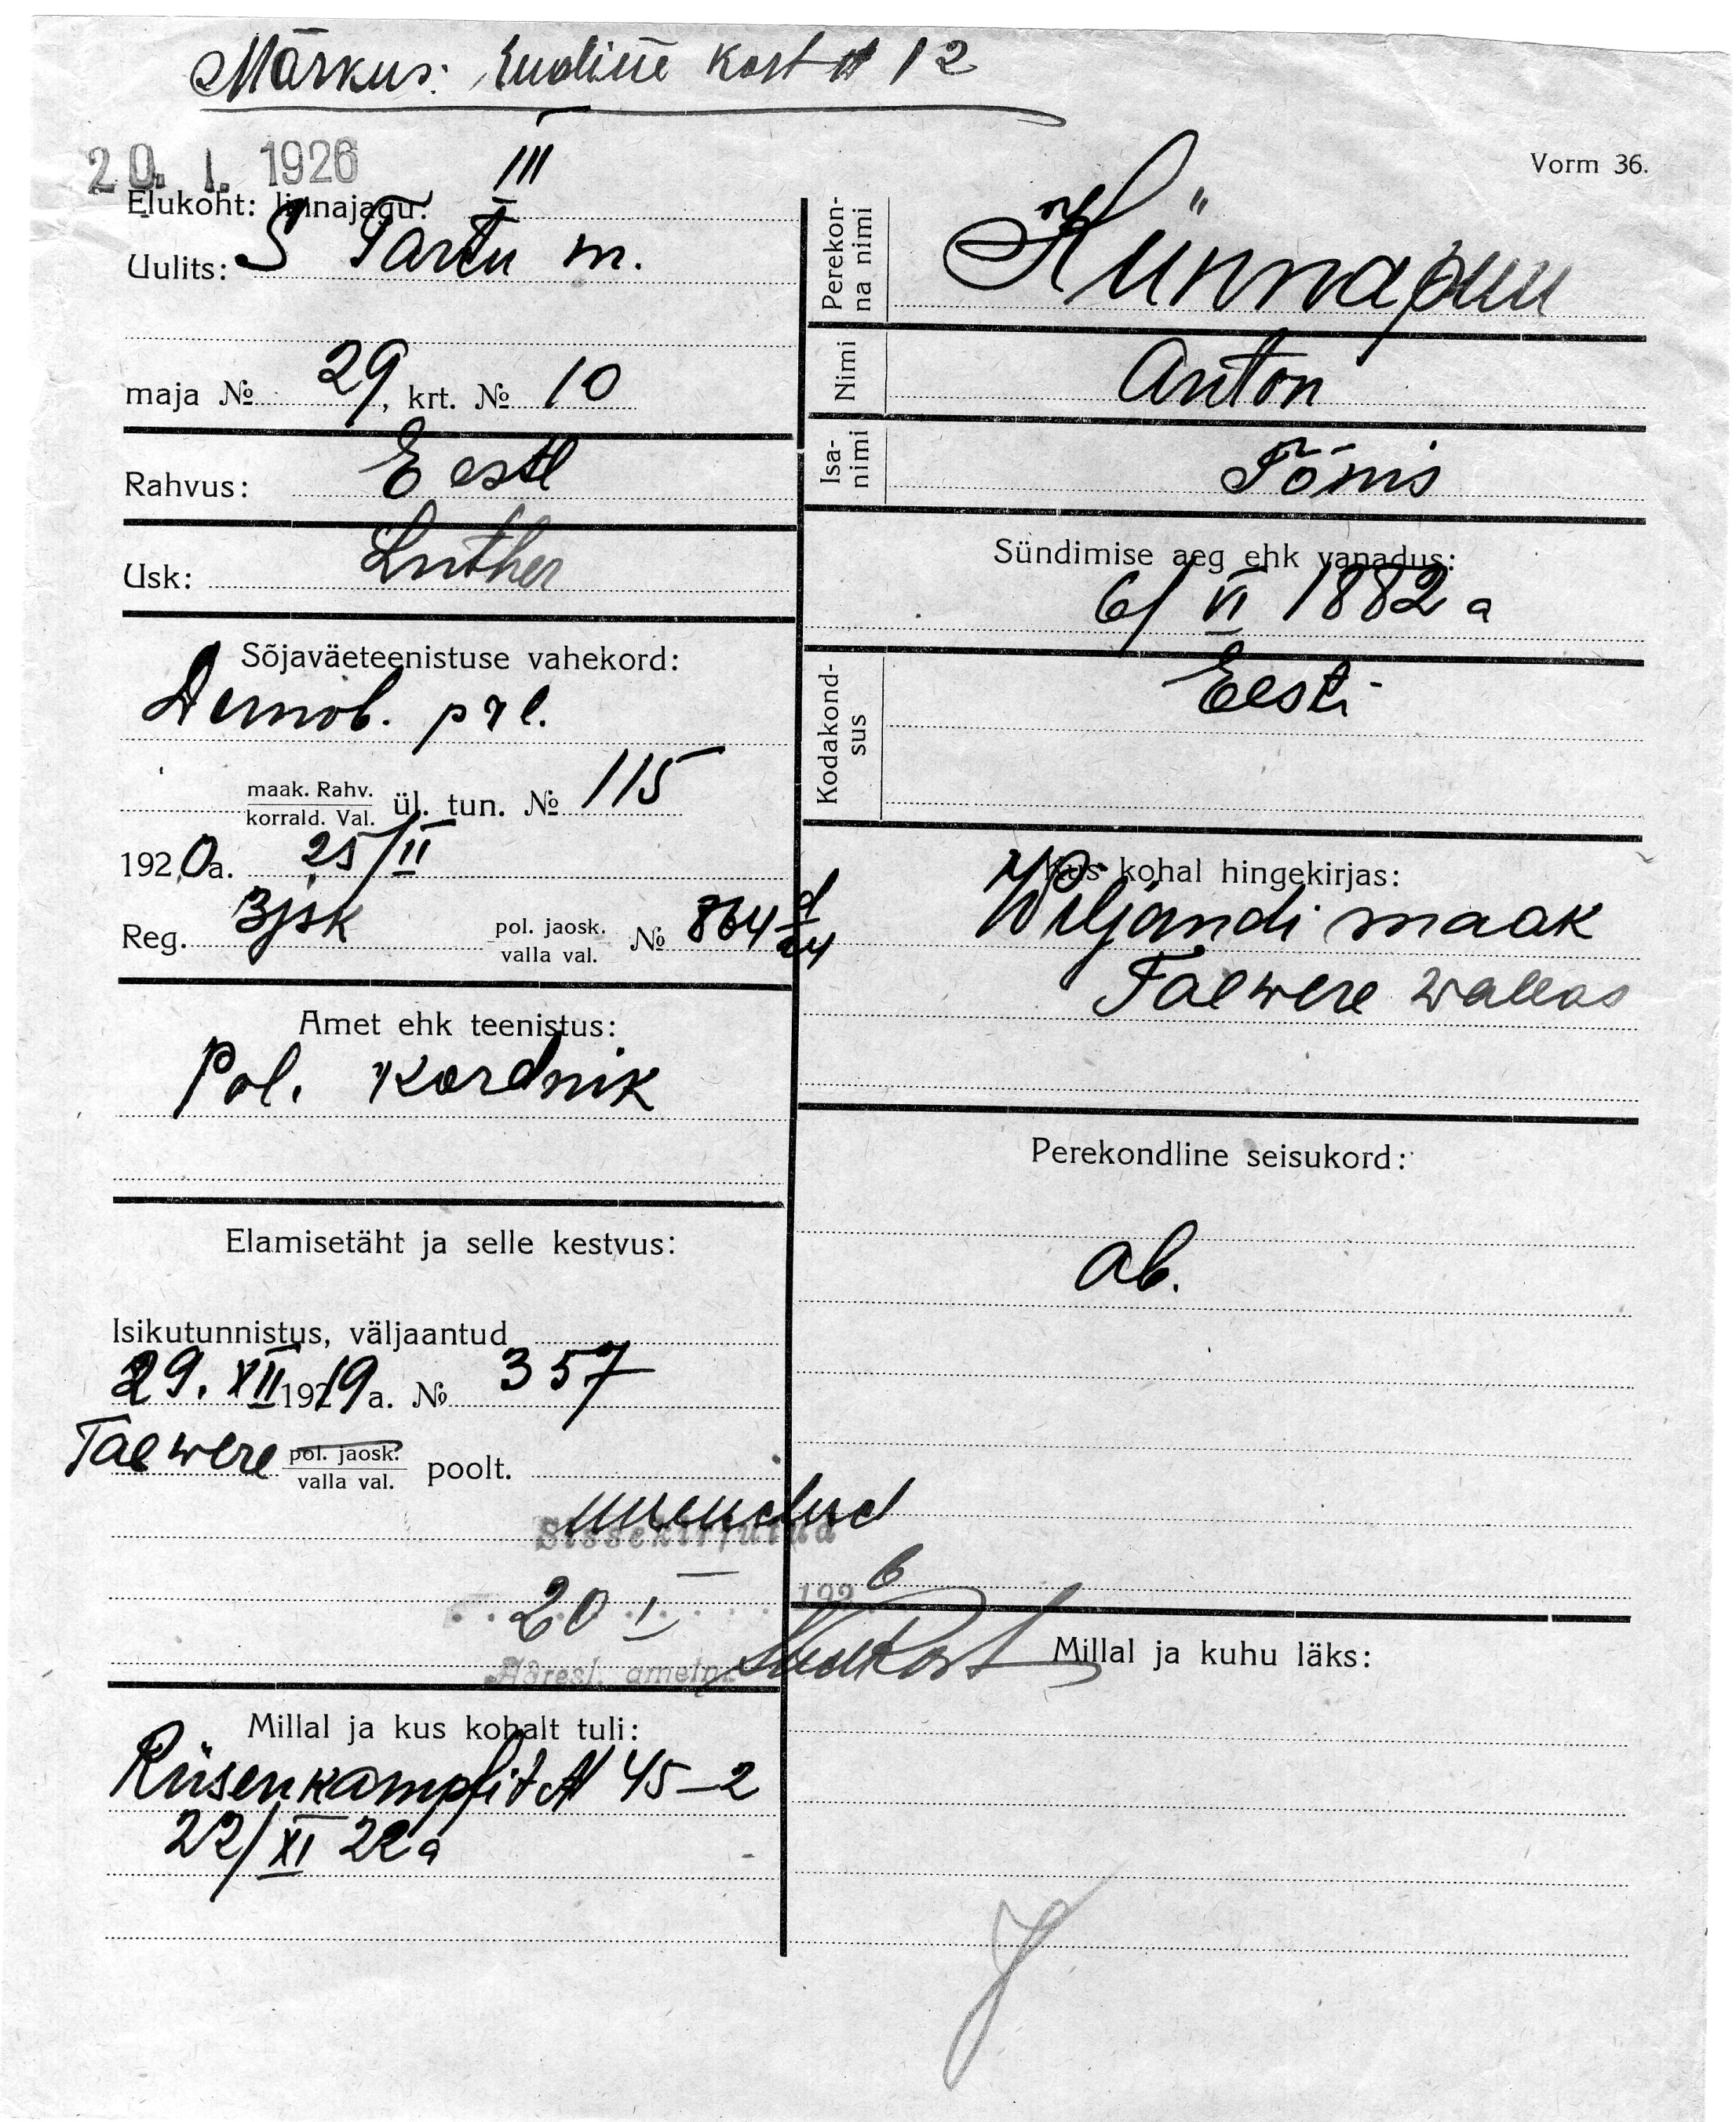 Märkus: Endine kort № 12
20. I. 1926
Vorm 36.
Elukoht: linnajagu: III
Uulits: S Tartu m.
maja № 29, krt. № 10
Rahvus: Eestl
Usk: Luther
Sõjaväeteenistuse vahekord:
Demob.
maak. Rahv.
korrald. Val. ül. tun. № 115
1920a. 25/II
Reg. 3jsk pol. jaosk.
valla val. № 864
Amet ehk teenistus:
Pol. kordnik
Elamisetäht ja selle kestvus:
Isikutunnistus, väljaantud
29. XII 1919a. № 357
Taewere pol. jaosk.
valla val. poolt.
uuendud
Sissekirjutud
20 I 1926
Adresl. ametn.
Millal ja kus kohalt tuli:
45-2
22/XI 22a
Perekon-
na nimi
Künnapuu
Nimi
Anton
Isa-
nimi
Tõnis
Sündimise aeg ehk vanadus:
6/VI 1882 a
Kodakond-
sus
Eesti
Kus kohal hingekirjas:
Wiljandi maak
Taewere wallas
Perekondline seisukord:
ab.
Millal ja kuhu läks: